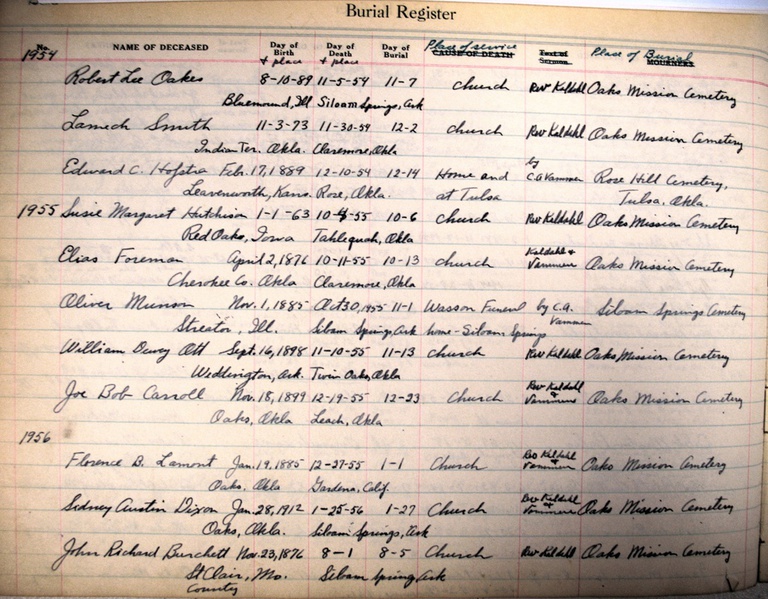 Burial Register
No. NAME OF DECEASED Day of Birth & place Day of Death & place Day of Burial Place of service CAUSE OF DEATH Text of Sermon Place of Burial MOURNERS
1954
Robert Lee Oakes 8-10-89 11-5-54 11-7 church Rev Kaldahl Oaks Mission Cemetery
Bluemound, Ill Siloam Springs, Ark
Lamech Smith 11-3-73 11-30-54 12-2 church Rev Kaldahl Oaks Mission Cemetery
Indian Ter. Okla. Claremore, Okla
Edward C. Hofstra Feb. 17, 1889 12-10-54 12-14 Home and by C.A Vammen Rose Hill Cemetery,
Leavenworth, Kans. Rose, Okla. at Tulsa Tulsa, Okla.
1955 Susie Margaret Hutchison 1-1-63 10-4-55 10-6 church Rev Kaldahl Oaks Mission Cemetery
Red Oaks, Iowa Tahlequah, Okla
Elias Foreman April 2, 1876 10-11-55 10-13 church Kaldahl & Vammen Oaks Mission Cemetery
Cherokee Co. Okla Claremore, Okla
Oliver Munson Nov. 1, 1885 Oct 30, 1955 11-1 Wasson Funeral by C.A. Vammen Siloam Springs Cemetery
Streator, Ill. Siloam Springs, Ark home - Siloam Springs
William Dewey Ott Sept. 16, 1898 11-10-55 11-13 church Rev Kaldahl Oaks Mission Cemetery
Weddington, Ark. Twin Oaks, Okla
Joe Bob Carroll Nov. 18, 1899 12-19-55 12-23 church Rev Kaldahl & Vammen Oaks Mission Cemetery
Oaks, Okla Leach, Okla
1956
Florence B. Lamont Jan. 19, 1885 12-27-55 1-1 Church Rev Kaldahl & Vammen Oaks Mission Cemetery
Oaks, Okla Gardena, Calif.
Sidney Austin Dixon Jan. 28, 1912 1-25-56 1-27 Church Rev Kaldahl & Vammen Oaks Mission Cemetery
Oaks, Okla. Siloam Springs, Ark
John Richard Burchett Nov. 23, 1876 8-1 8-5 Church Rev Kaldahl Oaks Mission Cemetery
St Clair, Mo. Siloam Spring, Ark
County